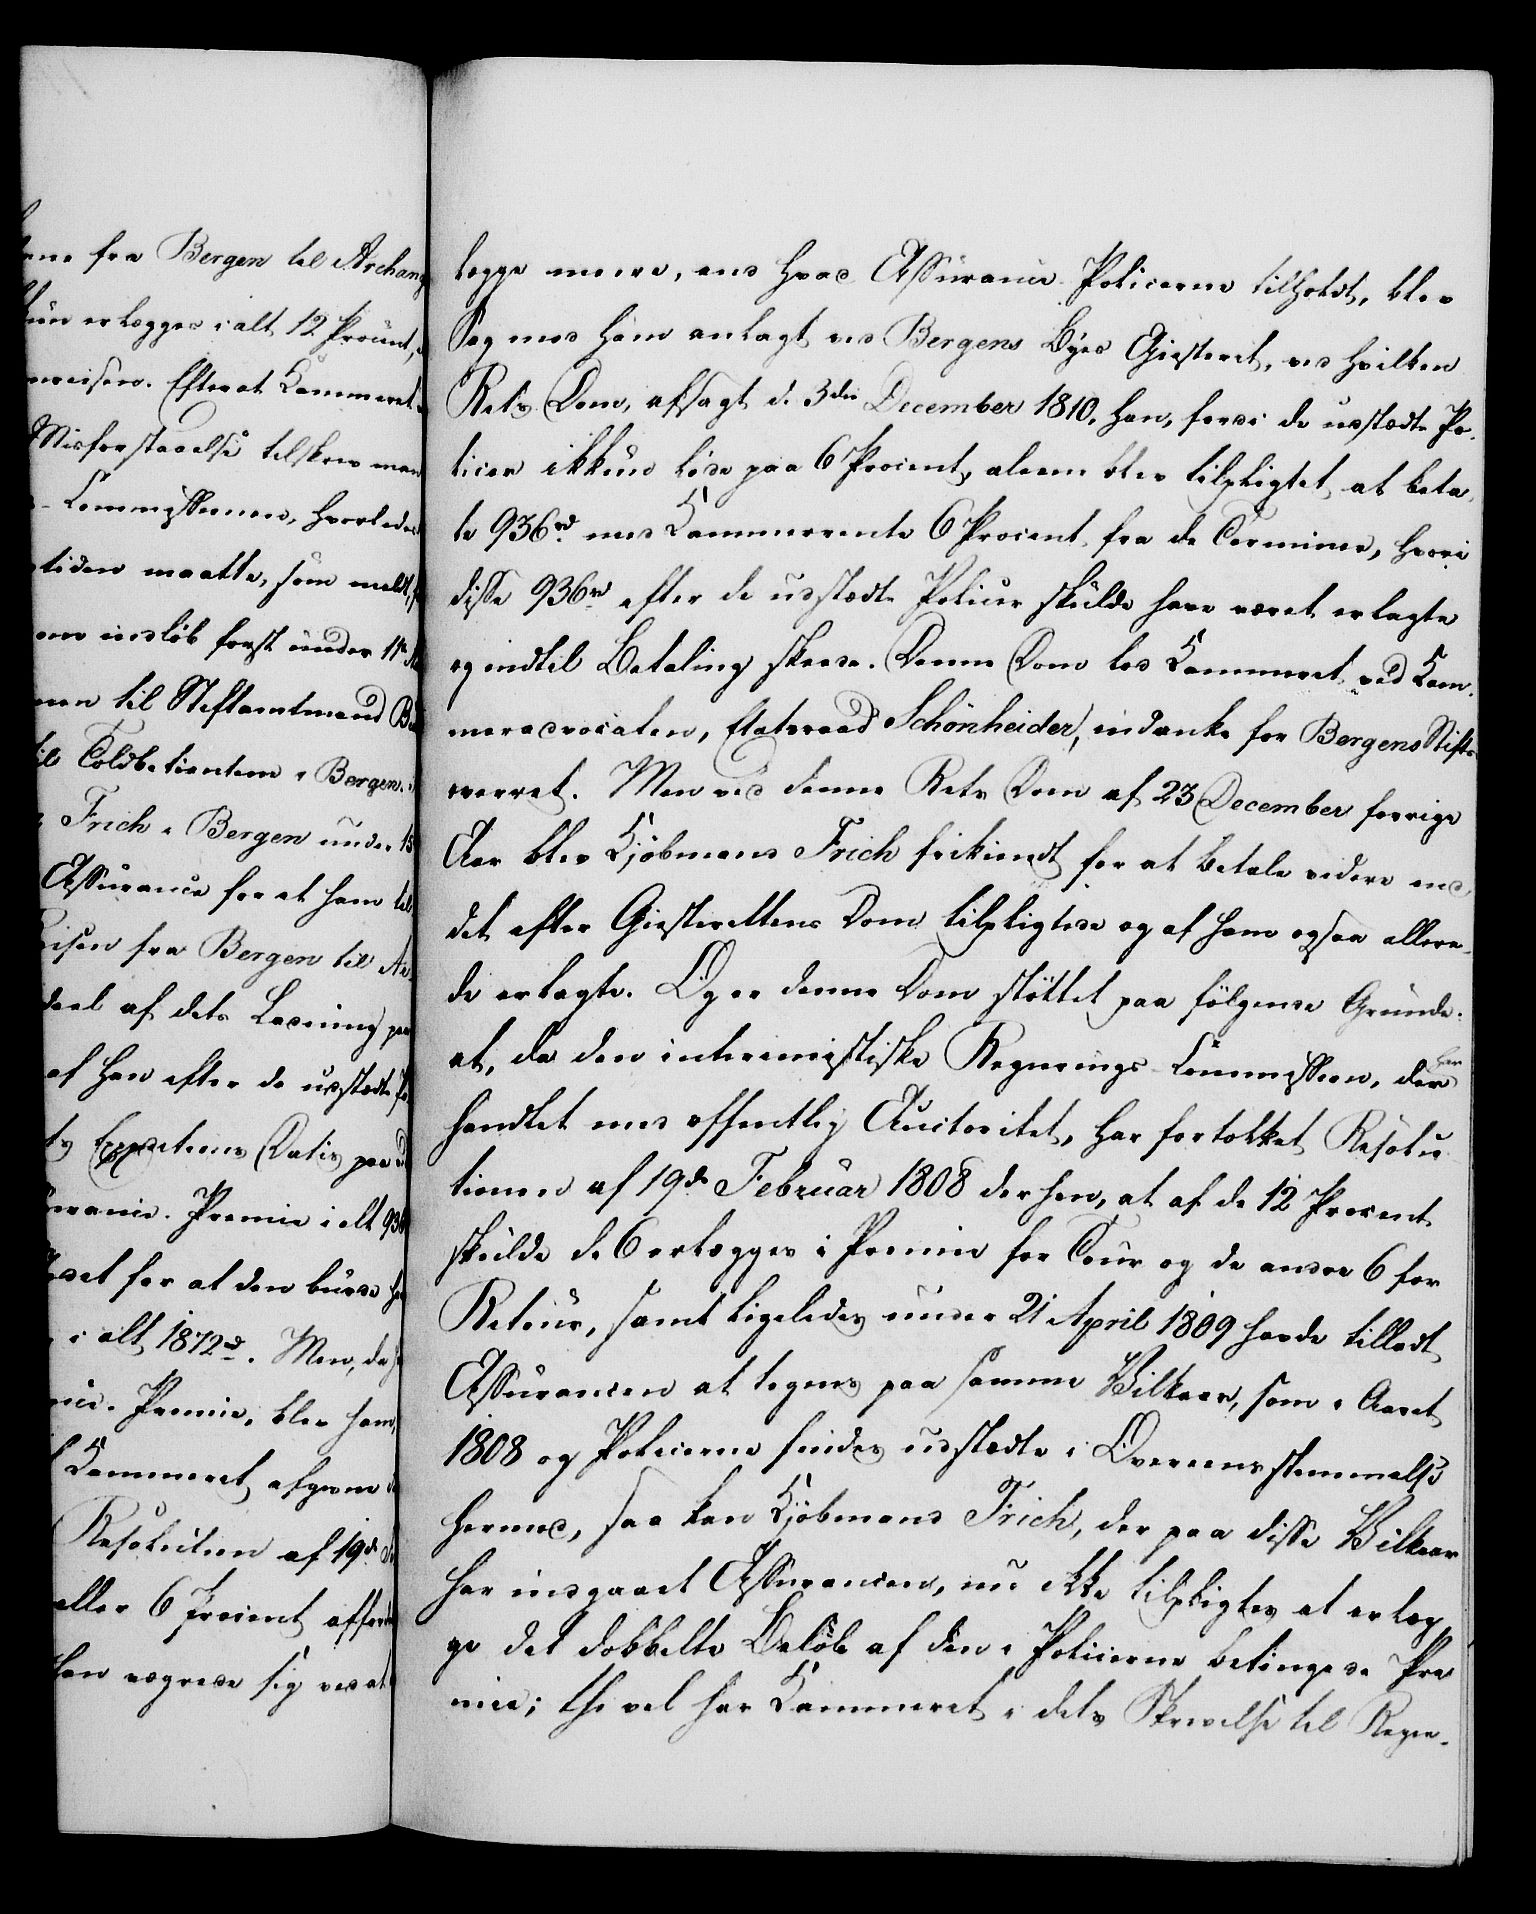 ene fra Bergen til Archang
kun erlægges i alt 12 Procent,
enreisen. Efterat Kammeret
Misforstaaelse tilskrev man
s-Commissionen, hvorledes
tiden maatte, som meldt,
indløb først under 11te
nen til Stiftamtmand
til Toldbetienterne i Bergen.
Frich i Bergen under 15
Assurance for et ham til
Reisen fra Bergen til Ar
deel af dets Ladning paa
af han efter de udstædte
ts Expeditions Datis paa
urance-Premie i alt 936
for at den burde
i alt 1872rd. Men, da
nce-Premie, blev ham,
Kammeret afgivne
Resolution af 19de
eller 6 Procent
han vægrede sig ved at
lægge meere, end hvad Assurance-Policerne tilholdt, blev
Sag mod ham anlagt ved Bergens Byes Giesteret, ved hvilken
Rets Dom, afsagt d. 3die December 1810, han, fordi de udstædte Po-
licer ikkun løde paa 6 Procent, aleene blev tilpligtet at beta-
le 936rd med Kammerrente 6 Procent fra de Terminer, hvori
disse 936rd efter de udstædte Policer skulde have været erlagte
og indtil Betaling skeede. Denne Dom lod Kammeret ved Kam-
meradvocaten, Etatsraad Schönheider, indanke for Bergens Stifts
overret. Men ved denne Rets Dom af 23 December forrige
Aar blev Kjøbmand Frich frikiendt for at betale videre end
det efter Giesterettens Dom tilpligtede og af ham ogsaa allere-
de erlagte. Og er denne Dom støttet paa følgende Grunde:
at, da den interimistiske Regierings-Commission, der har
handlet med offentlig Auctoritet, har fortolket Resolu-
tionen af 19de Februar 1808 derhen, at af de 12 Procent
skulde de 6 erlægges i Premie for Tour og de andre 6 for
Retour, samt ligeledes under 21 April 1809 havde tilladt
Assurancen at tegnes paa samme Vilkaar, som i Aaret
1808 og Policerne findes udstædte i Overeensstemmelse
hermed, saa kan Kjøbmand Frich, der paa disse Vilkaar
har indgaaet Assurancen, nu ikke tilpligtes at erlæg-
ge det dobbelte Beløb af den i Policerne betingede Præ
mie; thi vel har Kammeret i dets Skrivelse til Regie-